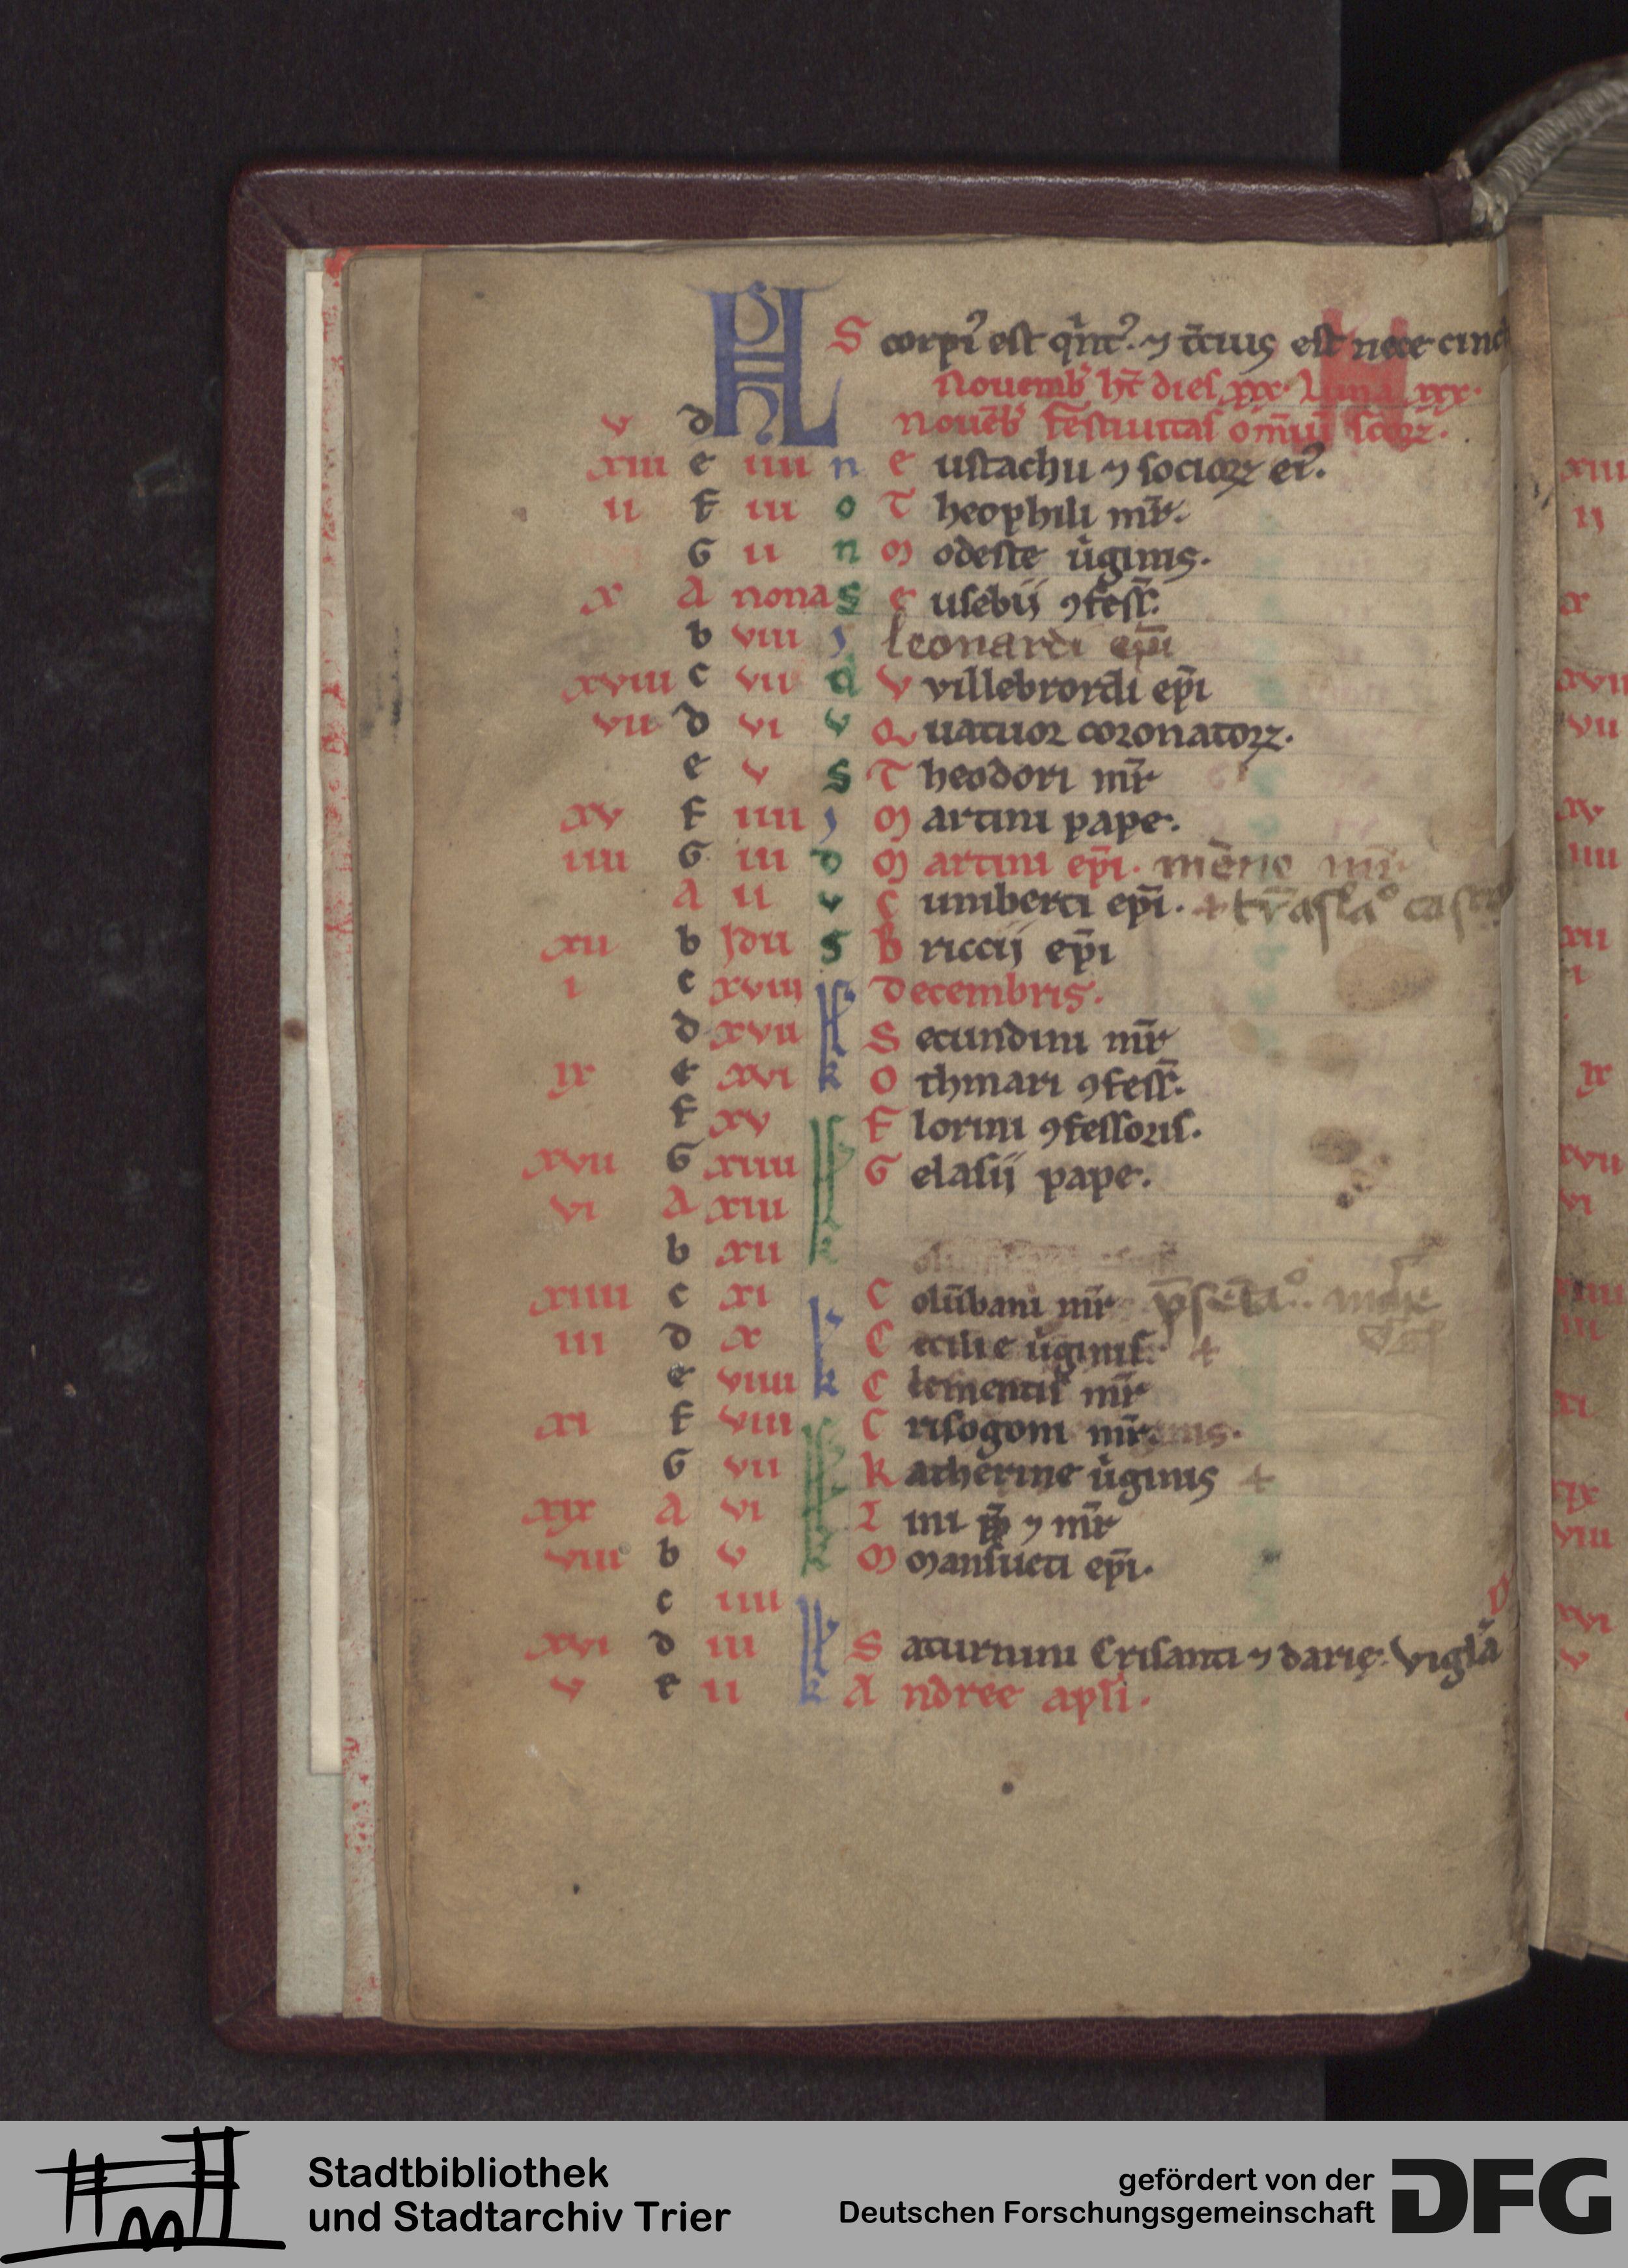 KL Scorpi᷒ est qͥnt᷒. ⁊ t̄cius est nece cinct
Nouemb᷒ ht̄ dies xxx. Luna xxx.
v d Nouēb᷒ Festiuitas om̄iū scōꝝ.
xiii e iiii n Eustachii ⁊ socioꝝ ei᷒.
ii F iii o Theophili mr̄.
G ii n Modeste ūginis.
x A nonas Eusebij ꝯfess̄.
b viii j leonardi ep̄i
xviii c vii d Vvillebrordi ep̄i
vii d vi v Quatuor coronatoꝝ.
e v s Theodori mr̄
xv F iiii j Martini pape.
iiii G iii d Martini ep̄i. mēne mr̄.
A ii v Cuniberti ep̄i. + tr̄asla°
xii b Jdu s Briccij ep̄i
i c xviii k Decembris.
d xvii Secundini mr̄
ix e xvi k Othmari ꝯfess̄.
F xv Florini ꝯfessoris.
xvii G xiiii Gelasij pape.
vi A xiii
b xii
xiiii c xi Colūbani mr̄ p̄sēta°
iii d x Cecilie ūginis. +
e viiii k Clementis mr̄
xi F viii Crisogoni mr̄
G vii Katherine ūginis +
xix A vi Lini pp̄ ⁊ mr̄
viii b v Mansueti ep̄i.
c iiii
xvi d iii Saturnini Crisanti ⁊ darię. Vigl̄a
v e ii k Andree apl̄i.
Stadtbibliothek
und Stadtarchiv Trier
gefördert von der
Deutschen Forschungsgemeinschaft
DFG